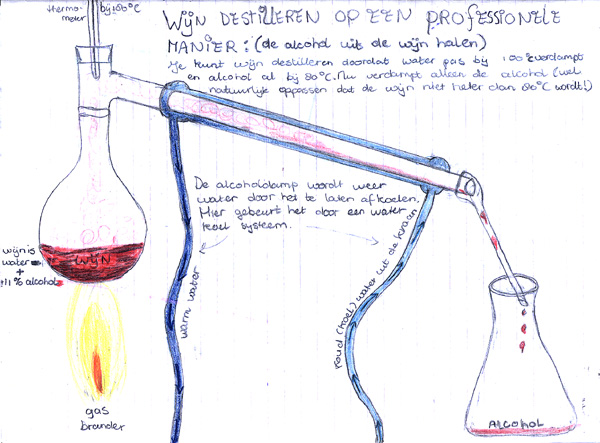 thermo-
meter
bij ±80°C
WIJN DESTILLEREN OP EEN PROFESSIONELE
MANIER: (de alcohol uit de wijn halen)
Je kunt wijn destilleren doordat water pas bij 100°C verdampt
en alcohol al bij 80°C. Nu verdampt alleen de alcohol (wel
natuurlijk oppassen dat de wijn niet heter dan 80°C wordt!)
De alcoholdamp wordt weer
water door het te laten afkoelen.
Hier gebeurt het door een water
koel systeem.
wijn is
water
+
±11% alcohol
WIJN
warm water
koud (koel) water uit de kraan
gas
brander
ALCOHOL